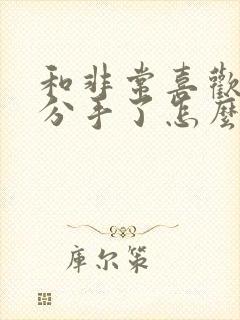 和非常喜歡
分手了怎麼
庫尔策